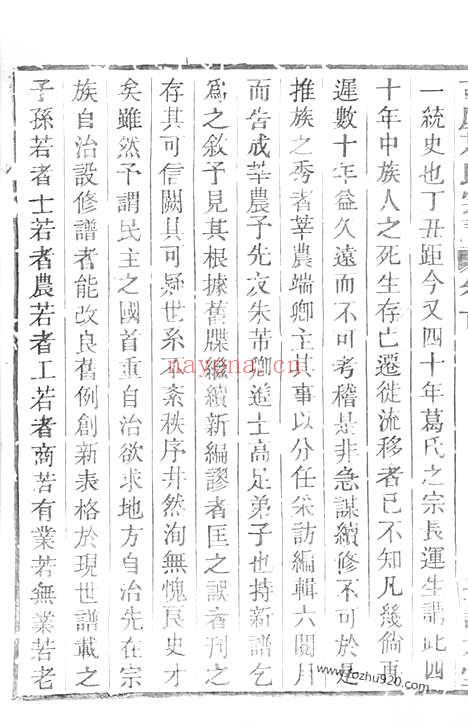 一統史也丁丑距今又四十年葛氏之宗長運生謂此四
十年中族人之死生存亡遷徙流移者已不知凡幾倘再
遲數十年益久遠而不可考稽是非急謀續修不可於是
推族之秀者莘農端卿主其事以分任采訪編輯六閱月
而告成莘農予先友朱芾卿進士高足弟子也持新譜乞
為之敘予見其根據舊牒繼續新編謬者匡之誤者刊之
存其可信闕其可疑世系不紊秩序井然洵無愧良史才
矣雖然予謂民主之國首重自治欲求地方自治先在宗
族自治設修譜者能改良舊例創新表格於現世譜載之
子孫若者士若者農若者工若者商若有業若無業若老
nayona.cn
www.fozhu920.com